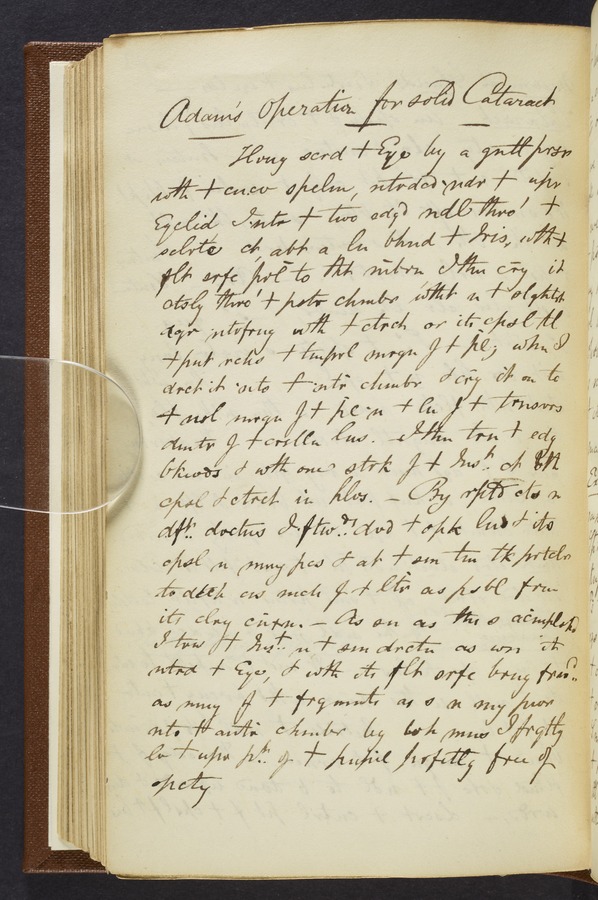 Adam's Operation for solid Cataract
Hvng scrd + Eye by a gntl prsr
wth + cncv spclm, ntrdcd ndr + upr
Eyelid I ntr + two edg'd ndl thro' +
sclrtc abt a ln bhnd + Iris, wth +
flt srfc to tht mbrn I thn cry it
ctsly thro' + pstr chmbr wtht n + slghtst
dgr ntrfrng wth + ctrct or its cpsl tl
+ pnt rchs + tmprl mrgn f + ppl; whn I
drct it into + intr chmbr & cry it on to
+ nsl mrgn f + ppl n + ln f + trnsvrs
dmtr f + crstlln lns. I thn trn + edg
bkwds & wth one strk f + Inst. ct
cpsl & ctrct in hlvs. – By rptd cts n
dfft. drctns I ftwds. dvd + opk lns & its
cpsl n mny pcs & at + sm tm tk prtclr
to dtch as mch f + ltr as psbl frm
its clry cnxn. – As sn as this s acmplshd
I trn + Inst. n + sm drctn as wn it
ntrd + Eye, & wth its flt srfc brng frwd.
as mny f + frgmnts as s n my pwr
nto + antr chmbr by wh mns I frqtly
lv + upr pt. of + pupil prfctly free of
opcty